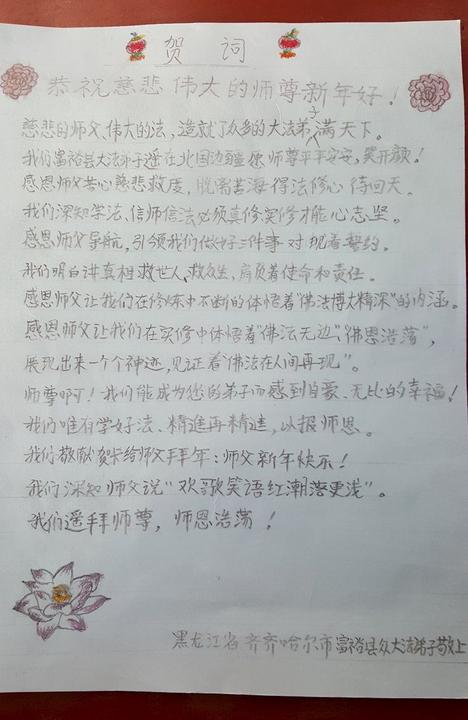 贺 词
恭祝慈悲伟大的师尊新年好！
慈悲的师父、伟大的法，造就了众多的大法弟子满天下。
我们富裕县大法弟子遥在北国边疆愿师尊平平安安，笑开颜！
感恩师父苦心慈悲救度，脱离苦海得法修心待回天。
我们深知学法、信师信法必须真修实修才能心志坚。
感恩师父导航，引领我们做好三件事对现着誓约。
我们明白讲真相救世人、救众生，肩负着使命和责任。
感恩师父让我们在修炼中不断的体悟着“佛法博大精深”的内涵。
感恩师父让我们在实修中体悟着“佛法无边”，“佛恩浩荡”，
展现出来一个个神迹，见证着“佛法在人间再现”。
师尊啊！我们能成为您的弟子而感到自豪、无比的幸福！
我们唯有学好法、精進再精進，以报师恩。
我们敬献贺卡给师父拜年：师父新年快乐！
我们深知师父说“欢歌笑语红潮落更浅”。
我们遥拜师尊，师恩浩荡！
黑龙江省齐齐哈尔市富裕县众大法弟子敬上